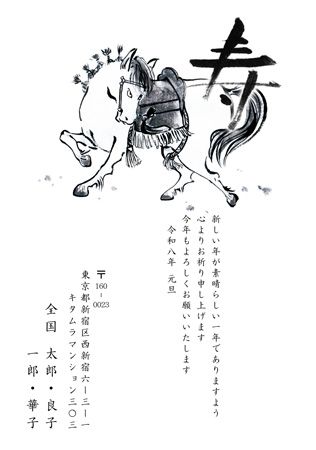 寿
新しい年が素晴らしい一年でありますよう
心よりお祈り申し上げます
今年もよろしくお願いいたします
令和八年 元旦
〒160-0023
東京都新宿区西新宿六-三-一
キタムラマンション三〇三
全国 太郎・良子
一郎・華子